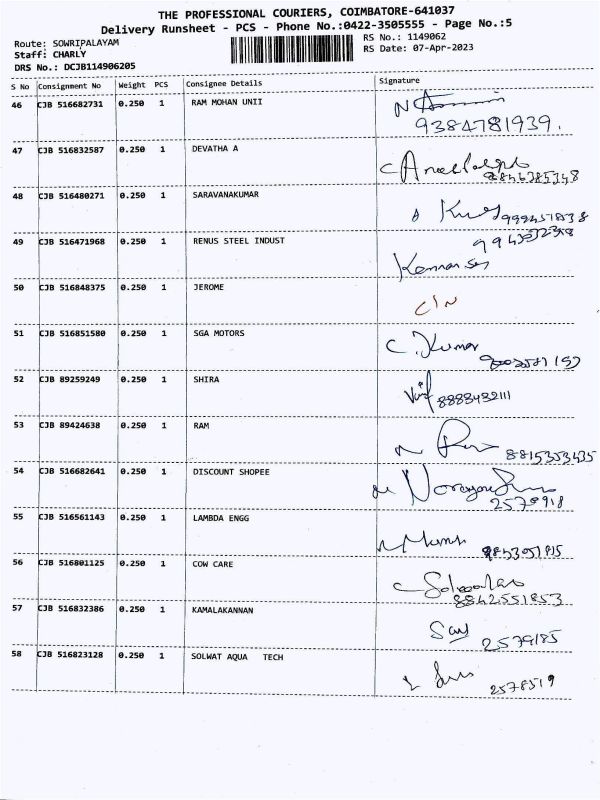 THE PROFESSIONAL COURIERS, COIMBATORE-641037
Delivery Runsheet - PCS - Phone No.:0422-3505555 - Page No.:5
Route: SOWRIPALAYAM
RS No.: 1149062
Staff: CHARLY
RS Date: 07-Apr-2023
DRS No.: DCJB114906205
S No Consignment No Weight PCS Consignee Details Signature
46 CJB 516682731 0.250 1 RAM MOHAN UNII
9384781939.
47 CJB 516832587 0.250 1 DEVATHA A
48 CJB 516480271 0.250 1 SARAVANAKUMAR
49 CJB 516471968 0.250 1 RENUS STEEL INDUST
50 CJB 516848375 1 0.250 JEROME
51 CJB 516851580 0.250 1 SGA MOTORS
C. Kumar
52 CJB 89259249 0.250 1 SHIRA
8888432111
53 CJB 89424638 0.250 1 RAM
8815353435
54 CJB 516682641 0.250 1 DISCOUNT SHOPEE
2578918
55 CJB 516561143 0.250 1 LAMBDA ENGG
56 CJB 516801125 0.250 1 COW CARE
8842551853
57 CJB 516832386 0.250 1 KAMALAKANNAN
2579185
58 CJB 516823128 0.250 1 SOLWAT AQUA TECH
2578519